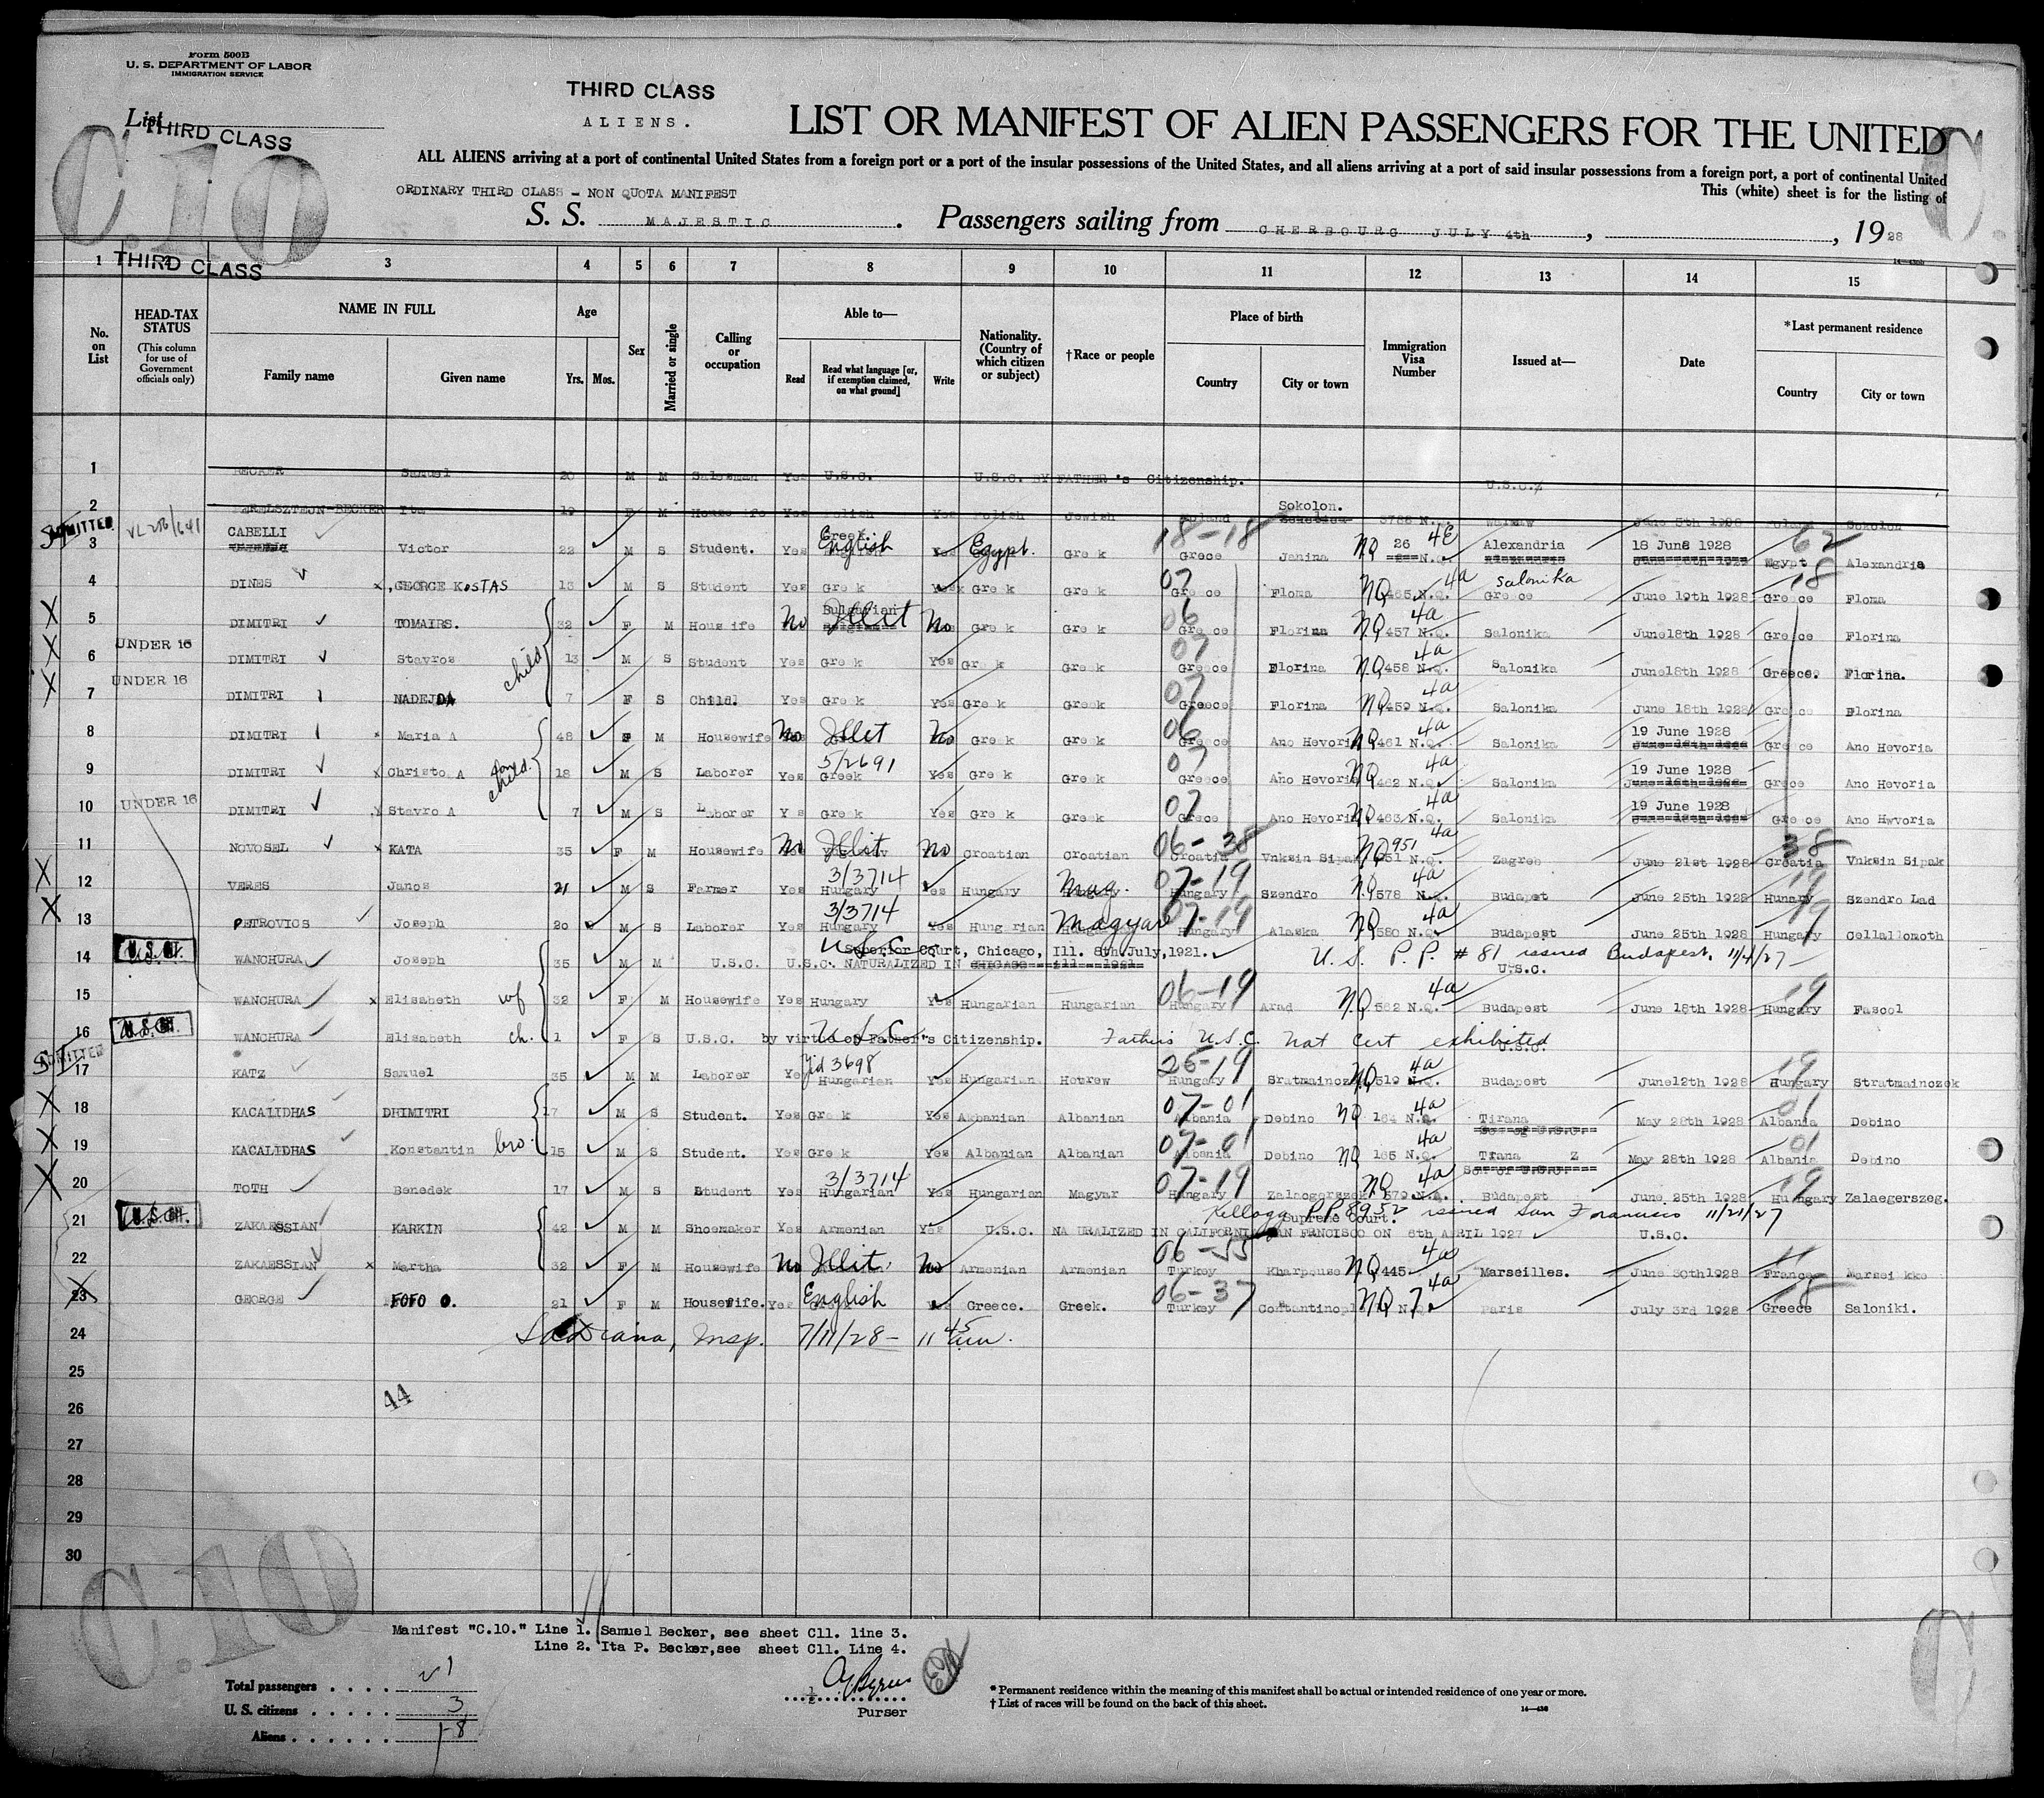 Form 500B
U. S. DEPARTMENT OF LABOR
IMMIGRATION SERVICE
List
THIRD CLASS
THIRD CLASS
ALIENS.
LIST OR MANIFEST OF ALIEN PASSENGERS FOR THE UNITED
ALL ALIENS arriving at a port of continental United States from a foreign port or a port of the insular possessions of the United States, and all aliens arriving at a port of said insular possessions from a foreign port, a port of continental United
This (white) sheet is for the listing of
C.10
C.
ORDINARY THIRD CLASS - NON QUOTA MANIFEST
S. S. MAJESTIC. Passengers sailing from CHERBOURG JULY 4th, , 1928
1 THIRD CLASS 3 4 5 6 7 8 9 10 11 12 13 14 15
No. on List
HEAD-TAX STATUS (This column for use of Government officials only)
NAME IN FULL Family name Given name
Age Yrs. Mos.
Sex
Married or single
Calling or occupation
Able to— Read Read what language [or, if exemption claimed, on what ground] Write
Nationality. (Country of which citizen or subject)
†Race or people
Place of birth Country City or town
Immigration Visa Number
Issued at—
Date
*Last permanent residence Country City or town
1 BECKER Samuel 20 M M Salesman Yes U.S.C. U.S.C. BY FATHER's Citizenship. U.S.C.
2 PERELSZTEJN-BECKER Ita 19 F M Housewife Yes Polish Yes Polish Jewish Poland Sokolon. 3788 N.Q. Warsaw June 5th 1928 Poland Sokolon
3 ADMITTED CABELLI Victor 22 M S Student. Yes Greek. English Yes Egypt. Gre k 18-18 Grece Janina NQ 26 4E N.Q. Alexandria 18 June 1928 62 Egypt Alexandria
4 DINES GEORGE KOSTAS 13 M S Student Yes Gre k Yes Gre k Gre k 07 Gre ce Floma NQ 465 N.Q. 4a Salonika Greece June 19th 1928 18 Greece Floma
5 X DIMITRI TOMAIRS. 32 F M Hous ife No Bulgarian Illit No Gre k Gre k 06 Gre ce Florina NQ 457 N.Q. 4a Salonika June18th 1928 Greece Florina
6 X UNDER 16 DIMITRI Stavros child 13 M S Student Yes Gre k Yes Gre k Greek 07 Greece Florina NQ 458 N.Q. 4a Salonika June18th 1928 Greece. Florina.
7 X UNDER 16 DIMITRI NADEJDA 7 F S Child. Yes Gre k Yes Gre k Greek 07 Greece Florina NQ 459 N.Q. 4a Salonika June 18th 1928 Gre ce Florina
8 DIMITRI x Maria A 48 F M Housewife No Illit No Gre k Gre k 06 Greece Ano Hevoria NQ 461 N.Q. 4a Salonika 19 June 1928 Gre ce Ano Hevoria
9 DIMITRI x Christo A son child 18 M S Laborer Yes 5/2691 Greek Yes Gre k Greek 07 Greece Ano Hevoria NQ 462 N.Q. 4a Salonika 19 June 1928 Grece Ano Hevoria
10 UNDER 16 DIMITRI Stavro A 7 M S Laborer Y s Greek Yes Gre k Greek 07 Grece Ano Hevoria NQ 463 N.Q. 4a Salonika 19 June 1928 Gre ce Ano Hwvoria
11 NOVOSEL x KATA 35 F M Housewife No Illit No Croatian Croatian 06-38 Croatia Vnksin Sipak NQ 951 N.Q. 4a Zagreb June 21st 1928 38 Croatia Vnksin Sipak
12 X VERES Janos 21 M S Farmer Yes 3/3714 Hungary Yes Hungary Mag. 07-19 Hungary Szendro NQ 578 N.Q. 4a Budapet June 25th 1928 19 Hunary Szendro Lad
13 X PETROVICS Joseph 20 M S Laborer Yes 3/3714 Hungary Yes Hung rian Magyar 07-19 Hungary Alaska NQ 580 N.Q. 4a Budapest June 25th 1928 19 Hungary Cellallomoth
14 WANCHURA Joseph 35 M M U.S.C. U.S.C. U.S.C. NATURALIZED IN Superior Court, Chicago, Ill. 8th July, 1921. U. S. P. P. # 81 issued Budapest, 11/4/27 U.S.C.
15 WANCHURA x Elisabeth wf 32 F M Housewife Yes Hungary Yes Hungarian Hungarian 06-19 Hungary Arad NQ 582 N.Q. 4a Budapest June 18th 1928 19 Hungary Fascol
16 WANCHURA Elisabeth ch. 1 F S U.S.C. U.S.C. by virtue of Father's Citizenship. Father's U.S.C. Nat Cert exhibited U.S.C.
17 ADMITTED KATZ Samuel 35 M M Laborer Yes Yid 3698 Hungarian Yes Hungarian Hebrew 26-19 Hungary Sratmainczok NQ 519 N.Q. 4a Budapest June12th 1928 19 Hungary Stratmainczok
18 X KACALIDHAS DHIMITRI 17 M S Student. Yes Gre k Yes Albanian Albanian 07-01 Albania Debino NQ 164 N.Q. 4a Tirana May 28th 1928 01 Albania Debino
19 X KACALIDHAS Konstantin bro. 15 M S Student. Yes Greek Yes Albanian Albanian 07-01 Albania Debino NQ 165 N.Q. 4a Tirana May 28th 1928 01 Albania Debino
20 X TOTH Benedek 17 M S Student Yes 3/3714 Hungarian Yes Hungarian Magyar 07-19 Hungary Zalaegerszek NQ 579 N.Q. 4a Budapest June 25th 1928 19 Hungary Zalaegerszeg.
21 ZAKAESSIAN KARKIN 42 M M Shoemaker Yes Armenian Yes U.S.C. NA URALIZED IN CALIFORNIA Supreme Court. SAN FANCISCO ON 6th APRIL 1927 Kellogg P.P. 8952 issued San Francisco 11/21/27 U.S.C.
22 ZAKAESSIAN x Martha 32 F M Housewife No Illit. No Armenian Armenian 06-55 Turkey Kharpouse NQ 445 4a Marseilles. June 30th1928 France Marsei kke
23 GEORGE FOFO O. 21 F M Housewife. Yes English Yes Greece. Greek. 06-37 Turkey Constantinopl NQ 7 N.Q. 4a Paris July 3rd 1928 18 Greece Saloniki.
24 Insp. 7/11/28 - 11 45 am.
25
44
26
27
28
29
30
C.10
C
Manifest "C.10." Line 1. Samuel Becker, see sheet C11. line 3.
Line 2. Ita P. Becker, see sheet C11. Line 4.
Total passengers 21
U. S. citizens 3
Aliens 18
Purser
* Permanent residence within the meaning of this manifest shall be actual or intended residence of one year or more.
† List of races will be found on the back of this sheet.